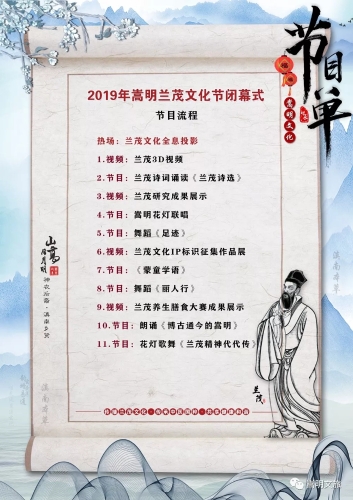 节目单
嵩明文化
2019年嵩明兰茂文化节闭幕式
节目流程
热场：兰茂文化全息投影
1.视频：兰茂3D视频
2.节目：兰茂诗词诵读《兰茂诗选》
3.视频：兰茂研究成果展示
4.节目：嵩明花灯联唱
5.节目：舞蹈《足迹》
6.视频：兰茂文化IP标识征集作品展
7.节目：《蒙童学语》
8.节目：舞蹈《丽人行》
9.视频：兰茂养生膳食大赛成果展示
10.节目：朗诵《博古通今的嵩明》
11.节目：花灯歌舞《兰茂精神代代传》
兰茂
嵩明文旅